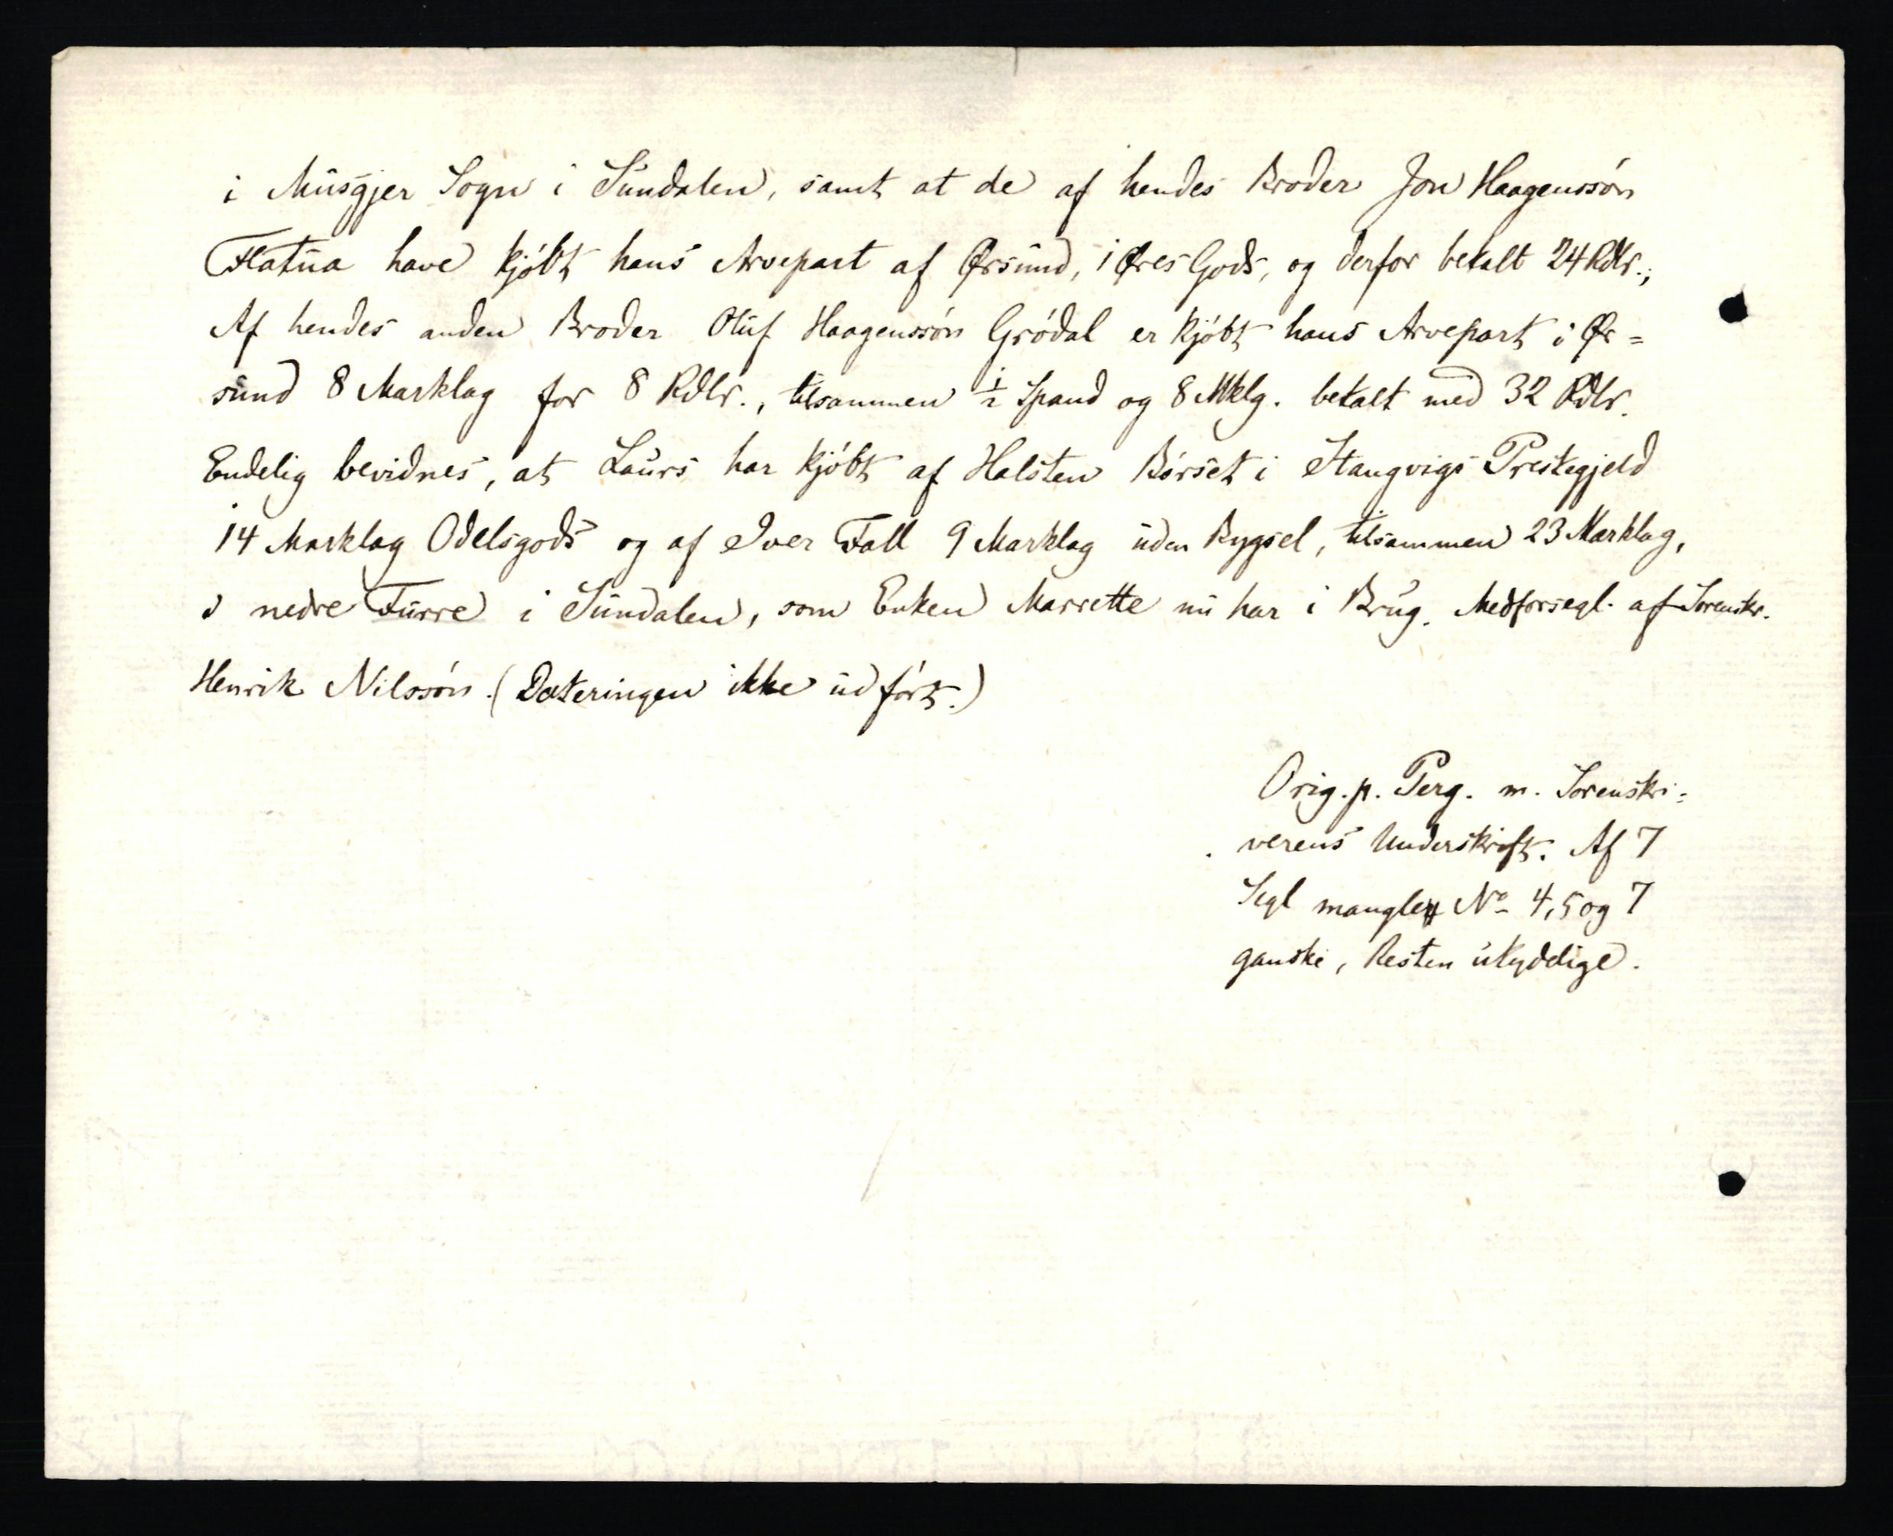 i Musgjer Sogn i Sundalen, samt at de af hendes Broder Jon Haagenssón
Flatua have kjóbt hans Arvepart af Ørsund, i Øres Gods, og derfor betalt 24 Rdlr.;
Af hendes anden Broder Oluf Haagenssón Gródal er kjóbt hans Arvepart i Ør=
sund 8 Marklag for 8 Rdlr., tilsammen ½ Spand og 8 Mklg. betalt med 32 Rdlr.
Endelig bevidnes, at Laurs har kjóbt af Halsten Bórset i Stangvigs Prestegjeld
14 Marklag Odelsgods og af Iver Fall 9 Marklag uden Bygsel, tilsammen 23 Marklag,
i nedre Furre i Sundalen, som Enken Marrette nu har i Brug. Medforsegl. af Sorenskr.
Henrik Nilssón. (Dateringen ikke udfórt.)
Orig. p. Perg. m. Sorenskri=
verens Underskrift. Af 7
Segl mangler No 4, 5 og 7
ganske, Resten utydelige.